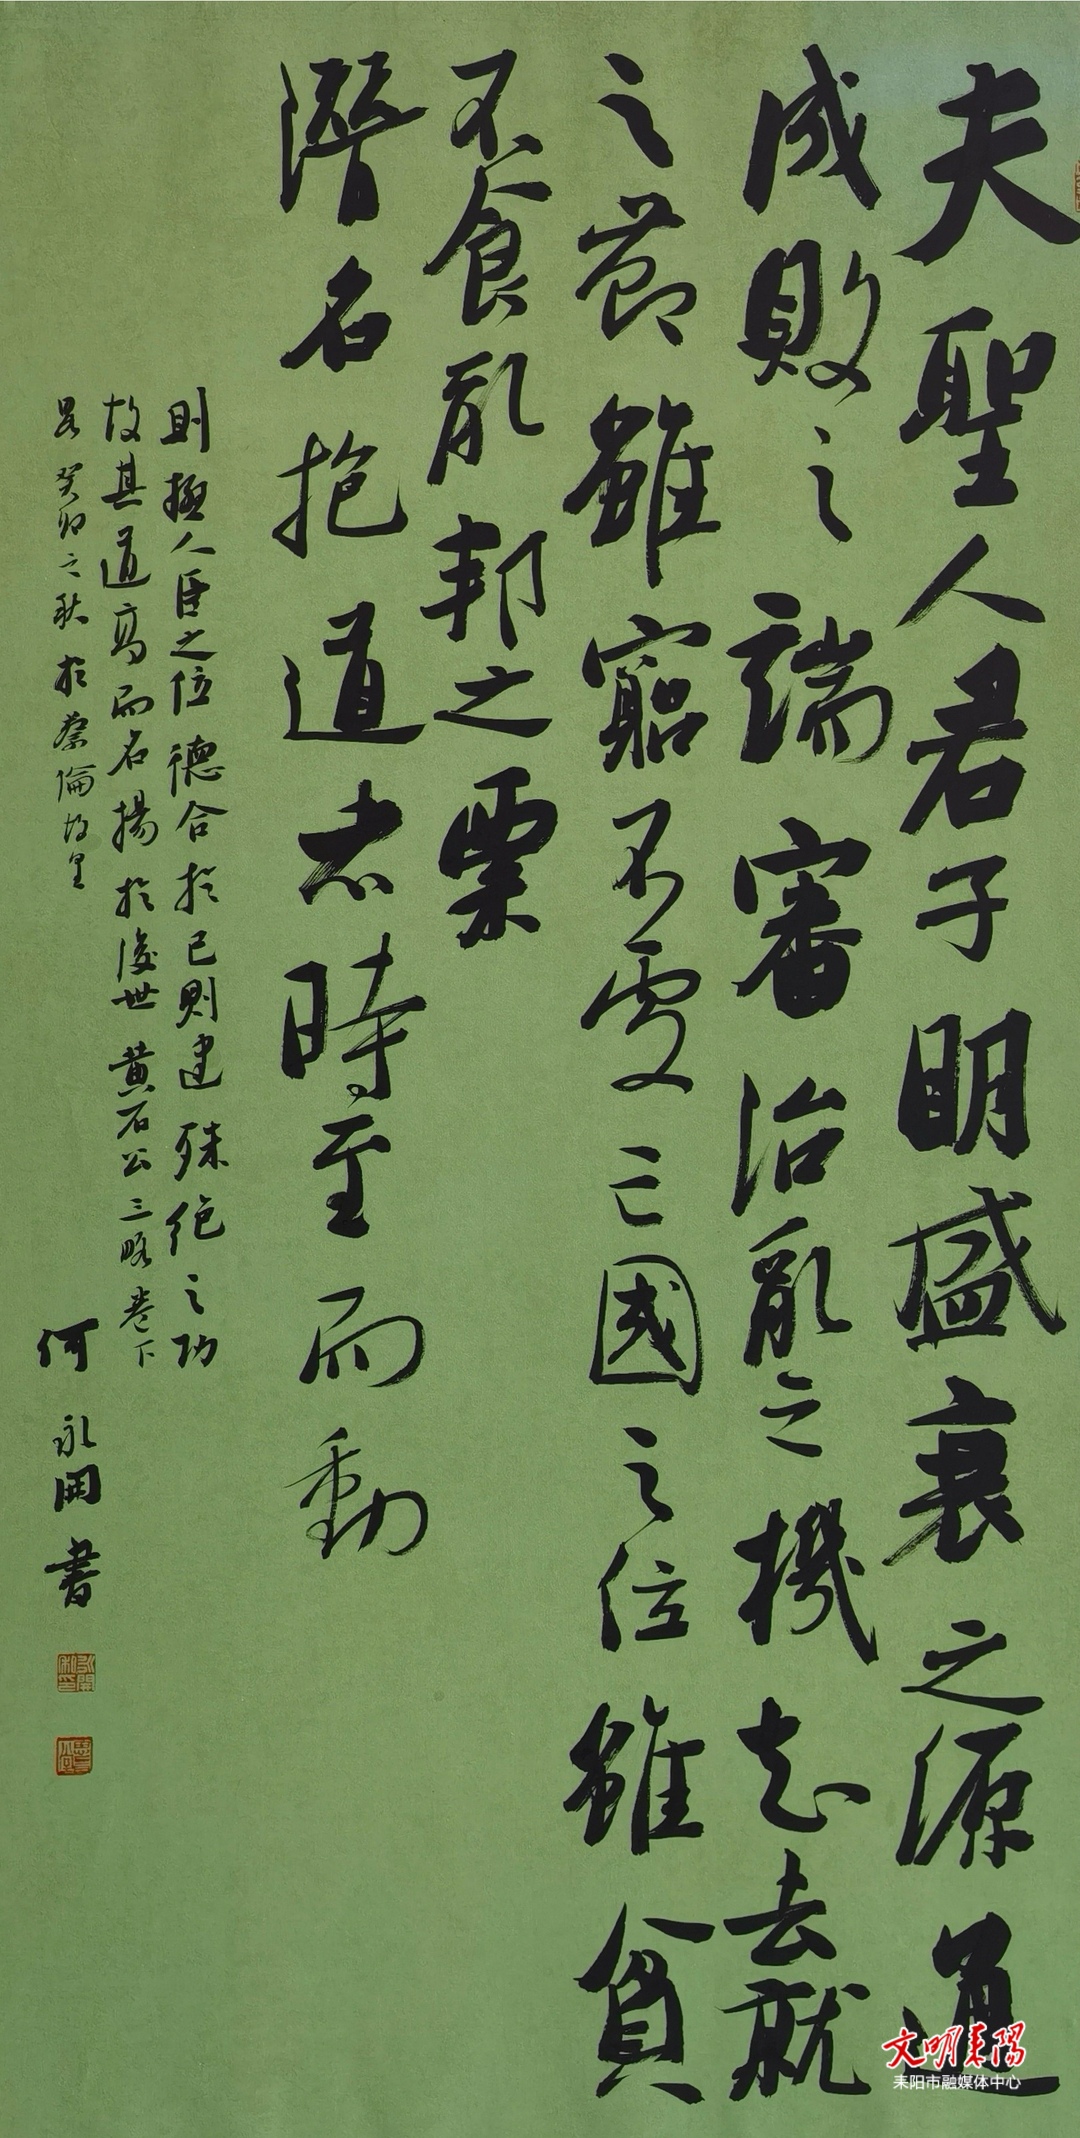 夫聖人君子明盛衰之源通
成敗之端審治亂之機知去就
之節雖窮不處亡國之位雖貧
不食亂邦之粟
潛名抱道者時至而動
則極人臣之位德合於己則建殊絕之功
故其道高而名揚於後世黄石公三略卷下
癸卯之秋於蔡倫故里
何永開書
文明耒陽
耒阳市融媒体中心